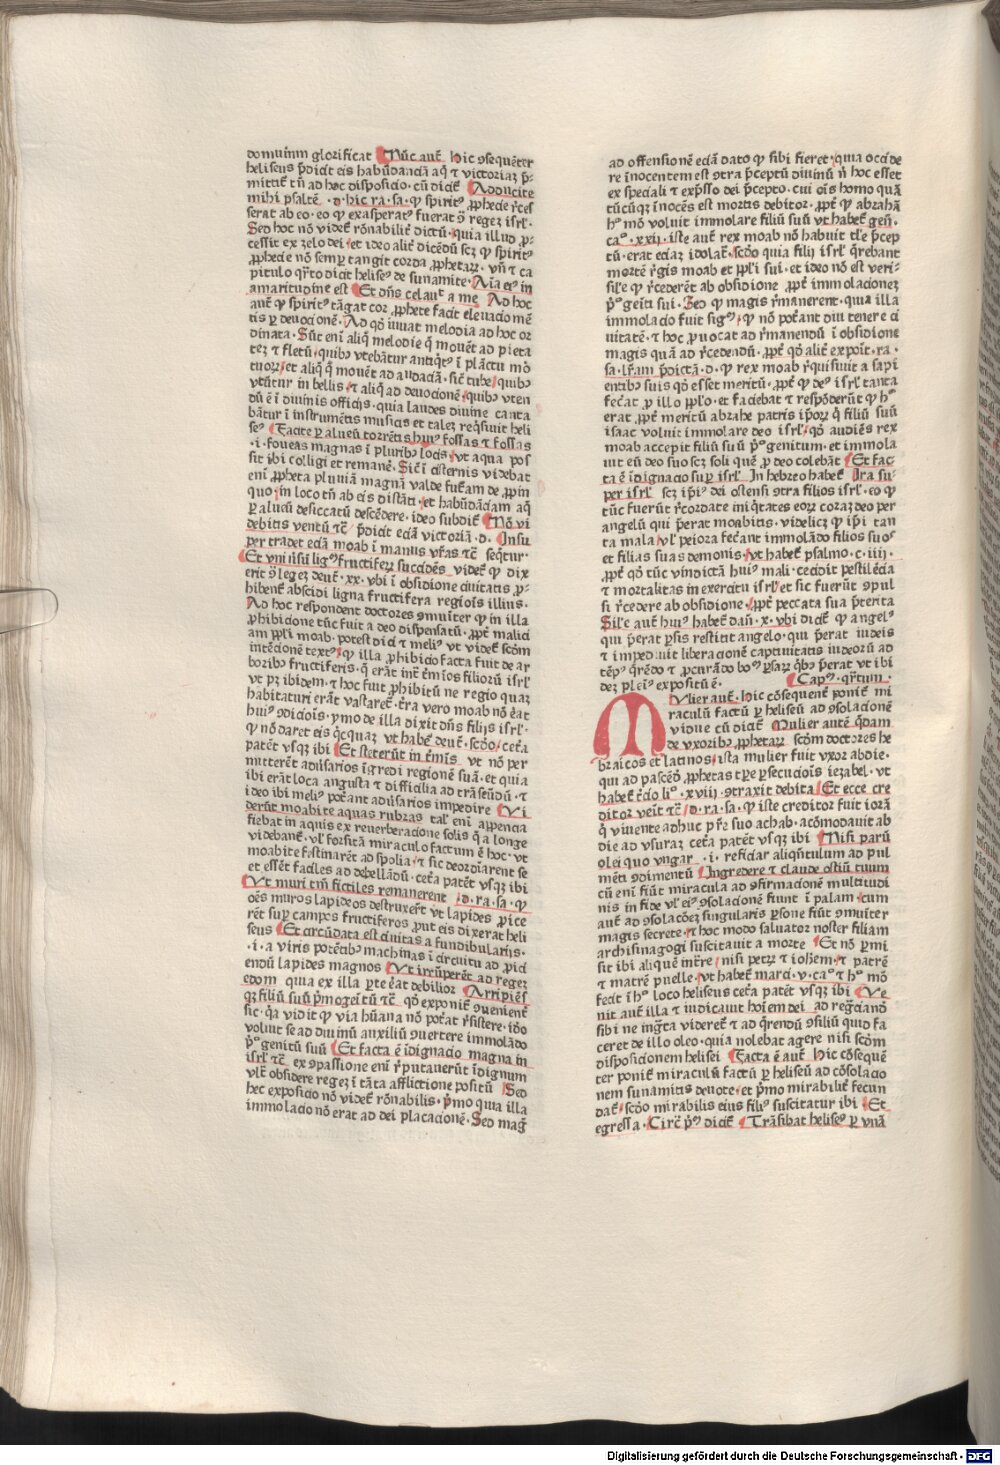 dominum glorificat Nūc aut̄ hic ꝯsequēter
heliseus p̄dicit eis habūdanciā aq̄ ⁊ victoriaꝫ p̄·
mittit̄ tn̄ ad hoc disposicio · cū dicit̄ Adducite
mihi psaltē · d · hic ra · sa · ꝙ spiritꝰ ꝓphecie r̄ces
serat ab eo · eo ꝙ exasperatꝰ fuerat ꝯ̄ regeꝫ isrl̓ ·
Sed hoc nō videt̄ rōnabilit̄ dictū · quia illud ꝓ·
cessit ex zelo dei · et ideo alit̄ dicēdū scꝫ ꝙ spiritꝰ
ꝓphecie nō semꝑ tangit corda ꝓphetaꝝ · vn̄ ⁊ ca
pitulo q̄rto dicit heliseꝰ de sunamite · Aīa eiꝰ in
amaritudine est Et dn̄s celauit a me Ad hoc
aut̄ ꝙ spiritꝰ tāgat cor ꝓphete facit eleuacio mē
tis ꝑ deuocionē · Ad qd̓ iuuat melodia ad hoc or
dinata · Sūt enī aliq̄ melodie q̄ mouēt ad pieta
teꝫ ⁊ fletū · quibꝰ vtebātur antiqͥtꝰ ī plāctu mō
tuoꝝ · et aliq̄ q̄ mouēt ad audaciā · sic̄ tube · quibꝰ
vtūtur in bellis · ⁊ aliq̄ ad deuocionē · quibꝰ vten
dū ē ī diuinis officijs · quia laudes diuine canta
bātur ī instrumētis musicis et taleꝫ reqͥsiuit heli
seꝰ Facite ꝑ alueū torrētis huiꝰ fossas ⁊ fossas
· i · foueas magnas ī pluribꝰ locis · vt aqua pos
sit ibi colligi et remanē · Sic̄ ī cisternis videbat
enī ꝓpheta pluviā magnā valde fut̄am de ꝓpin
quo · in loco tn̄ ab eis distāti · et habūdāciam aq̄
ꝑ alueū desiccatū descēdere · ideo subdit̄ Nō vi
debitis ventū ⁊c̄ p̄dicit eciā victoriā · d · Insu
per tradet eciā moab ī manus vr̄as ⁊c̄ seqͥtur ·
Et vniūsū ligⁿᵘ fructiferꝫ succidēs videt̄ ꝙ dix
erit ꝯ̄ legeꝫ deut̄ · xx · vbi ī obsidione ciuitatis ꝓ·
hibent̄ abscidi ligna fructifera regiōis illius ·
Ad hoc respondent doctores ꝯmuīter ꝙ in illa
ꝓhibicione tūc fuit a deo dispensatū · ꝓpt̄ malici
am ppl̓i moab · potest dici ⁊ meliꝰ vt videt̄ scd̓m
intēcionē textꝰ · ꝙ illa ꝓhibicio facta fuit de ar
boribꝰ fructiferis · q̄ erāt int̄ t̄mīos filioꝝ isrl̓
vt pꝫ ibidem · ⁊ hoc fuit ꝓhibitū ne regio quaꝫ
habitaturi erāt vastaret̄ · t̄ra vero moab nō ēat
huiꝰ ꝯdicōis · ymo de illa dixit dn̄s filijs isrl̓ ·
ꝙ nō daret eis qͥcquaꝫ vt habet̄ deut̄ · scd̓o · cet̓a
patēt vsqꝫ ibi Et steterūt in t̄mīs vt nō per
mitterēt adūsarios īgredi regionē suā · et quia
ibi erāt loca angusta ⁊ difficilia ad trāseūdū · ⁊
ideo ibi meliꝰ pot̓ant adūsarios impedire Vi
derūt moabite aquas rubras tal̓ enī apparencia
fiebat in aquis ex reuerberacione solis q̄ a longe
videbant̄ · vl̓ forsitā miraculo factum ē hoc · vt
moabite festinarēt ad spolia · ⁊ sic deordīarent se
et essēt faciles ad debellādū · cet̓a patēt vsqꝫ ibi
Vt muri tm̄ fictiles remanerent · d · ra · sa · ꝙ
oēs muros lapideos destruxer̄t vt lapides ꝓice
rēt suꝑ campos fructiferos ꝓut eis dixerat heli
seus Et circūdata est ciuitas a fundibularijs ·
· i · a viris potētibꝰ machinas ī circuitu ad ꝓici
endū lapides magnos Vt irrūperēt ad regeꝫ
edom quia ex illa ꝑte ēat debilior Arripiēs
qꝫ filiū suū p̄mogēitū ⁊c̄ qd̓ exponit̄ ꝯuenient̄
sic · q̄a vidit ꝙ via hūana nō pot̓at r̄sistere · ido
voluit se ad diuinū auxiliū ꝯuertere immolādo
p̄ⁿgenitū suū Et facta ē īdignacio magna in
isrl̓ ⁊c̄ ex ꝯpassione enī r̄putauerūt īdignum
vlt̄ obsidere regeꝫ ī tāta afflictione positū Sed
hec exposicio nō videt̄ rōnabilis · p̄mo quia illa
immolacio nō erat ad dei placacionē · Sed mag̓
ad offensionē eciā dato ꝙ sibi fieret · quia occide
re īnocentem est ꝯtra p̄ceptū diuinū n̄ hoc esset
ex speciali ⁊ exp̄sso dei p̄cepto · cui oīs homo quā
tūcūqꝫ īnocēs est mortis debitor · ꝓpt̄ ꝙ abrahā
hᵒ mō voluit immolare filiū suū vt habet̄ geñ ·
caᵒ · xxij · iste aut̄ rex moab nō habuit tl̓e p̄cep
tū · erat eciaꝫ idolat̄ · scd̓o quia filij isrl̓ q̄rebant
mortē r̄gis moab et ppl̓i sui · et ideo nō est veri·
sil̓e ꝙ r̄cederēt ab obsidione ꝓpt̄ immolacioneꝫ
p̄ⁿgeīti sui · Sed ꝙ magis r̄manerent · quia illa
immolacio fuit sigⁿᵘ · ꝙ nō pot̓ant diu tenere ci
uitatē · ⁊ hoc ꝓuocat ad r̄manendū ī obsidione
magis quā ad r̄cedendū · ꝓpt̄ qd̓ alit̄ expoīt · ra ·
sa · lr̄am p̄dictā · d · ꝙ rex moab r̄quisiuit a sapi
entibꝰ suis qd̓ esset meritū · ꝓpt̄ ꝙ deꝰ isrl̓ tanta
fec̄at ꝓ illo ppl̓o · et faciebat ⁊ respōderūt ꝙ hᵒ
erat ꝓpt̄ meritū abrahe patris ip̄oꝝ q̄ filiū suū
isaac voluit immolare deo isrl̓ · qd̓ audiēs rex
moab accepit filiū suū p̄ⁿgenitum · et immola
uit eū deo suo scꝫ soli quē ꝓ deo colebāt Et fac
ta ē īdignacio suꝑ isrl̓ In hebreo habet̄ Ira su·
per isrl̓ scꝫ ip̄iꝰ dei ostensi ꝯtra filios isrl̓ · eo ꝙ
tūc fuerūt r̄cordate iniqͥtates eoꝝ coraꝫ deo per
angelū qui p̄erat moabitis · videlicꝫ ꝙ ip̄i tan
ta mala · vl̓ peiora fec̄ant immolādo filios suoˢ
et filias suas demonis · vt habet̄ psalmo · c · iiij ·
ꝓpt̄ qd̓ tūc vindictā huiꝰ mali · cecidit pestilēcia
⁊ mortalitas in exercitu isrl̓ · et sic fuerūt ꝯpul
si r̄cedere ab obsidione · ꝓpt̄ peccata sua p̄terita
Sil̓e aut̄ huiꝰ habet̄ dañ · x · vbi dicit̄ ꝙ angelꝰ
qui p̄erat ꝑsis restitit angelo · qui p̄erat iudeis
⁊ impediuit liberacionē captiuitatis iudeoꝝ ad
tēpꝰ q̄rēdo ⁊ ꝓcurādo boⁿᵘ ꝑsaꝝ q̄bꝰ p̄erat vt ibi
deꝫ pleīꝰ expositū ē · Capᵐ · qͣrtum ·
Mulier aut̄ · hic cōsequent̄ ponit̄ mi
raculū factū ꝑ heliseū ad ꝯsolacionē
vidue cū dicit̄ Mulier autē q̄dam
de vxoribꝰ ꝓphetaꝝ scd̓m doctores he
braicos et latinos · ista mulier fuit vxor abdie ·
qui ad pascēdoˢ ꝓphetas tꝑe ꝑsecucōis iezabel · vt
habet̄ t̓cio liᵒ · xviij · ꝯtraxit debita Et ecce cre
ditor veīt ⁊c̄ · d · ra · sa · ꝙ iste creditor fuit iorā
q̄ vivente adhuc pr̄e suo achab · acōmodauit ab
die ad vsuraꝫ cet̓a patēt vsqꝫ ibi Nisi parū
olei quo vngar · i · reficiar aliqn̄tulum ad pul
mēti ꝯdimentū Ingredere ⁊ claude ostiū tuum
cū enī fiūt miracula ad ꝯfirmacionē multitudi
nis in fide vl̓ eiꝰ ꝯsolacionē fiunt ī palam · cum
aut̄ ad ꝯsolacōeꝫ singularis ꝑsone fiūt ꝯmuīter
magis secrete · ⁊ hoc modo saluator noster filiam
archisinagogi suscitauit a morte Et nō ꝑmi
sit ibi aliquē intr̄re · nisi petꝝ ⁊ iohem̄ · ⁊ patrē
⁊ matrē puelle · vt habet̄ marci · v · caᵒ ⁊ hᵒ mō
fecit ī hᵒ loco heliseus cet̓a patēt vsqꝫ ibi Ve
nit aut̄ illa ⁊ iudicauit hoīem dei ad reg̓cianō
sibi ne ingͣta videret̄ ⁊ ad q̄rendū ꝯsiliū quid fa
ceret de illo oleo · quia nolebat agere nisi scd̓m
disposicionem helisei Facta ē aut̄ hic cōseque
ter ponit̄ miraculū factū ꝑ heliseū ad cōsolacio
nem sunamitis deuote · et p̄mo mirabilit̄ fecun
dat̄ · scd̓o mirabilis eius filiꝰ suscitatur ibi Et
egressa · Circ̄ p̄ⁿ dicit̄ Trāsibat heliseꝰ ꝑ vnā
Digitalisierung gefördert durch die Deutsche Forschungsgemeinschaft · DFG